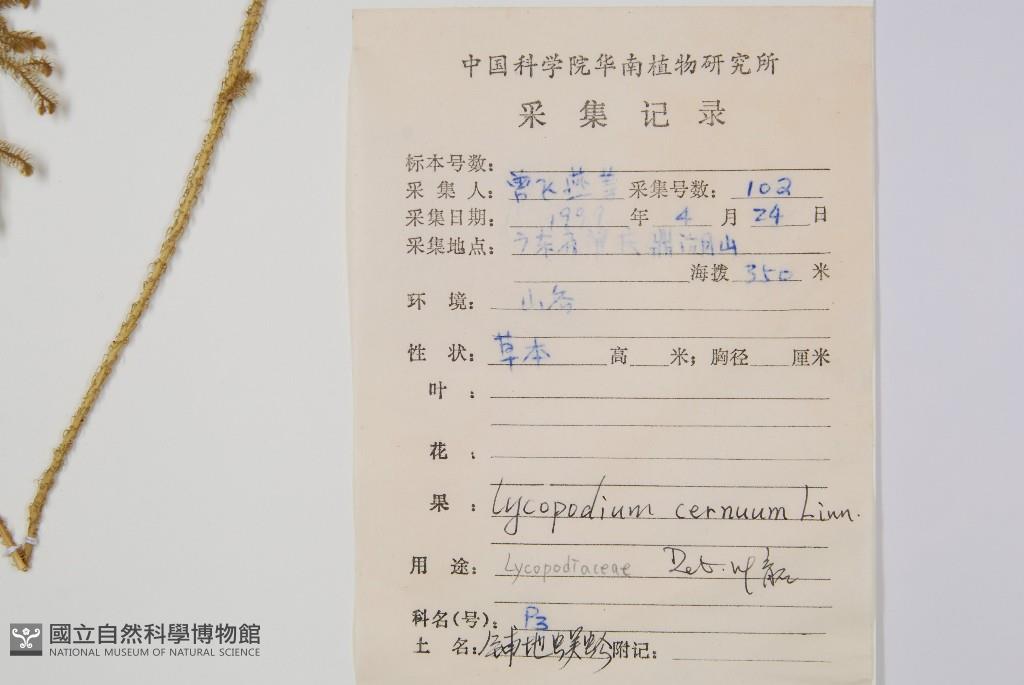 中国科学院华南植物研究所
采集记录
标本号数:
采集人: 曾飞燕等 采集号数: 102
采集日期: 1999 年 4 月 24 日
采集地点: 广东省肇庆鼎湖山
海拨 350 米
环境: 山谷
性状: 草本 高 米; 胸径 厘米
叶:
花:
果: Lycopodium cernuum Linn.
用途: Lycopodiaceae Det.
科名(号): P3
土名: 铺地蜈蚣 附记:
國立自然科學博物館
NATIONAL MUSEUM OF NATURAL SCIENCE